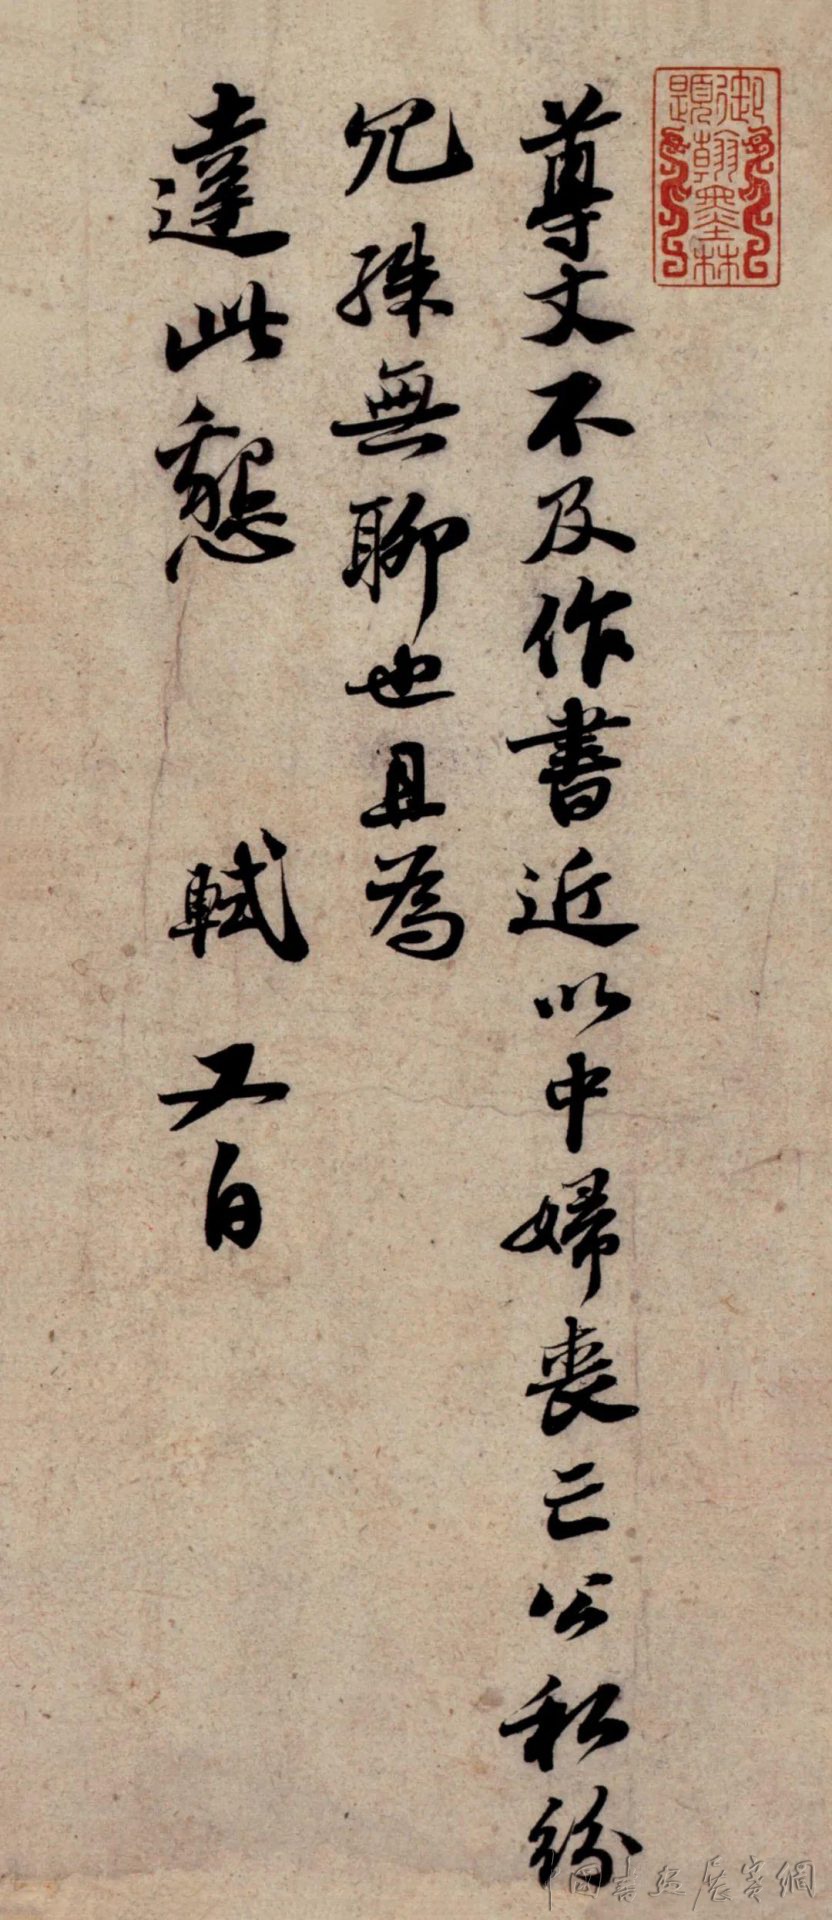 御題翰墨林
尊丈不及作書近以中婦喪亡公私紛
冗殊無聊也且為
達此懇 軾又白
中国书画展赛網